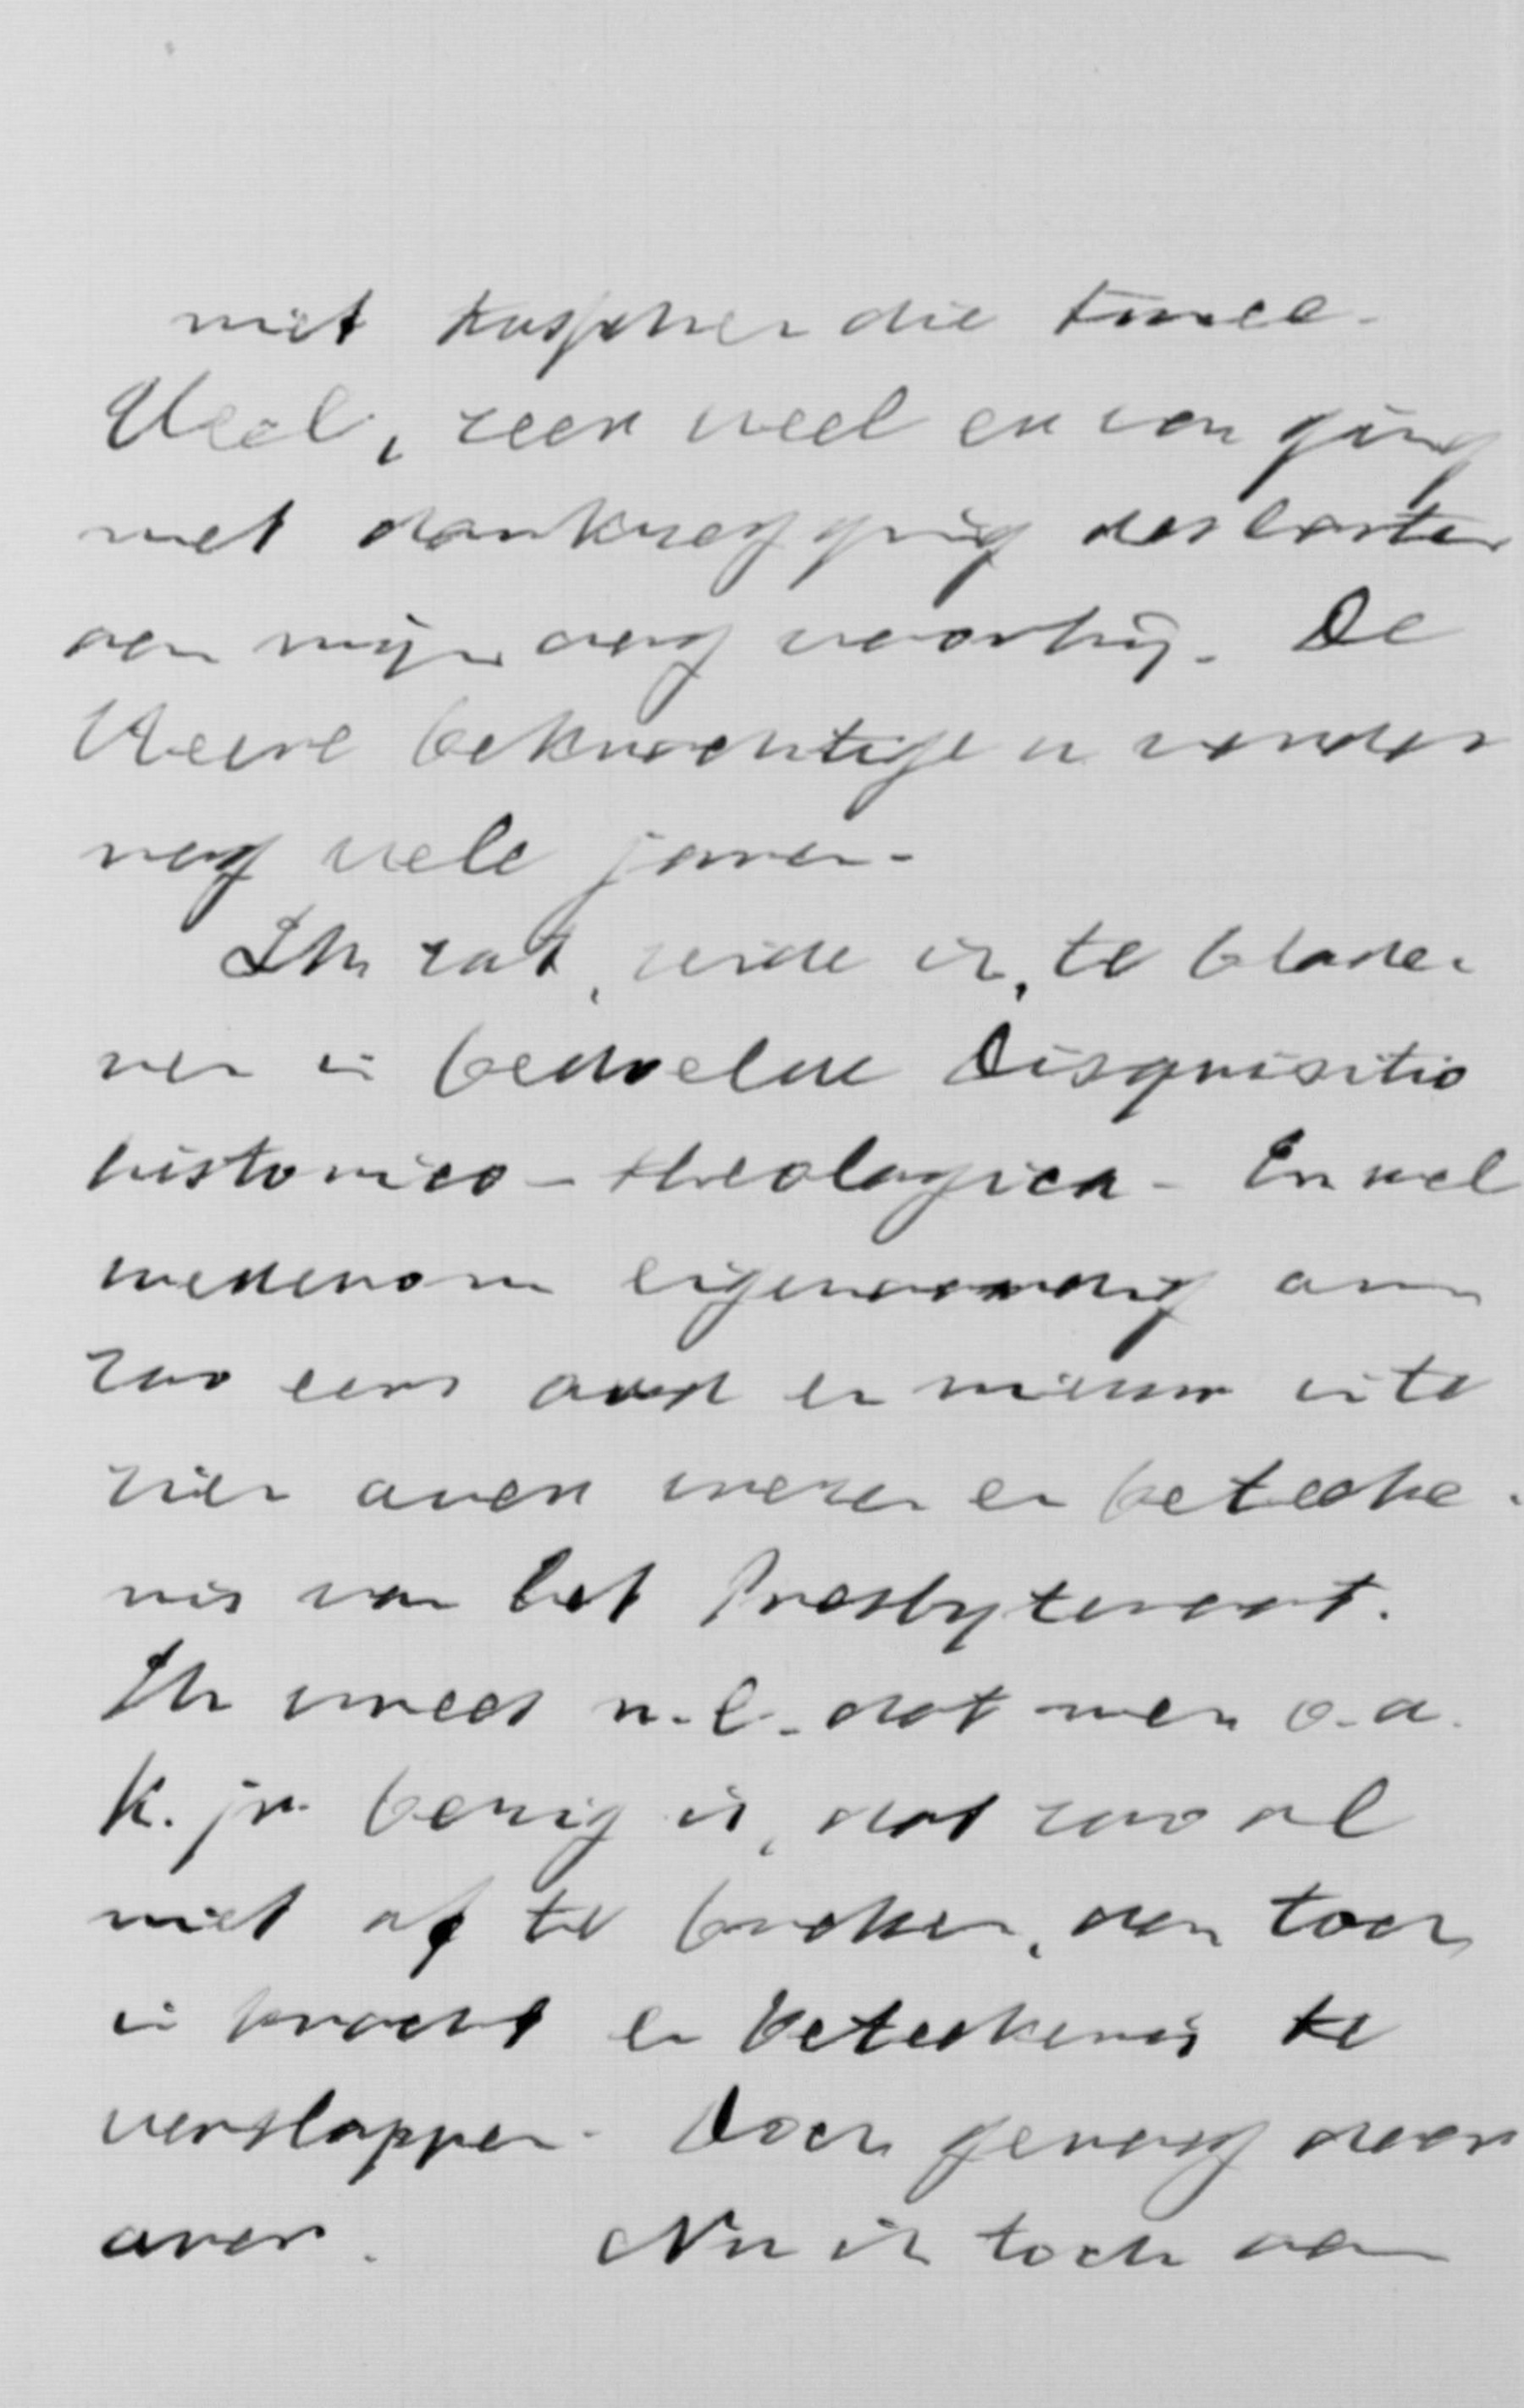 niet tusschen die twee.
Veel, zeer veel er van ging
met dankzegging des harten
aan mijn oog voorbij. De
Heere bekrachtige u verder
nog vele jaren.
Ik zat, zeide ik, te blade-
ren in bedoelde Disquisitio
historico-theologica. En wel
wederom eigenaardig om
zoo eens oud en nieuw in te
zien over wezen en beteeke-
nis van het Presbyteraat.
Ik vrees n.l. dat men o.a.
K. jr. bezig is, dat zoo al
niet af te breken, dan toch
in kracht en beteekenis te
verslappen. Doch genoeg daar
over. Nu ik toch aan